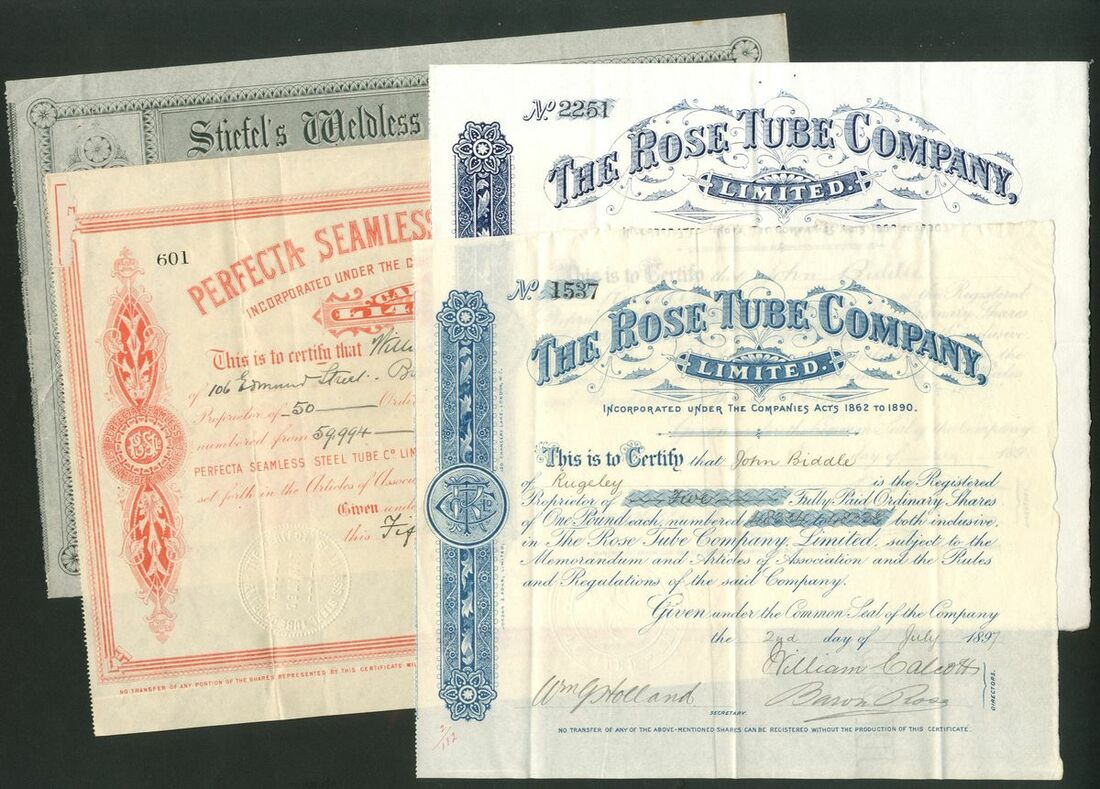 Stiefel's Weldless
601
PERFECTA SEAMLESS
INCORPORATED UNDER THE C
CA
£14
This is to certify that
of 106 Edmund Street. B
Proprietor of 50 Ord
numbered from 59,994
PERFECTA SEAMLESS STEEL TUBE CO LIM
set forth in the Articles of Assoc
Given unde
this
NO TRANSFER OF ANY PORTION OF THE SHARES REPRESENTED BY THIS CERTIFICATE WIL
No 2251
THE ROSE TUBE COMPANY,
LIMITED.
This is to Certify that John Biddle
No 1537
THE ROSE TUBE COMPANY,
LIMITED.
INCORPORATED UNDER THE COMPANIES ACTS 1862 TO 1890.
This is to Certify that John Biddle
of Rugeley is the Registered
Proprietor of Five Fully Paid Ordinary Shares
of One Pound each, numbered both inclusive,
in The Rose Tube Company, Limited, subject to the
Memorandum and Articles of Association and the Rules
and Regulations of the said Company.
Given under the Common Seal of the Company
the 2nd day of July 1897
William Calcott
Wm G Holland
Baron Ross
DIRECTORS.
SECRETARY.
2/112
NO TRANSFER OF ANY OF THE ABOVE-MENTIONED SHARES CAN BE REGISTERED WITHOUT THE PRODUCTION OF THIS CERTIFICATE.